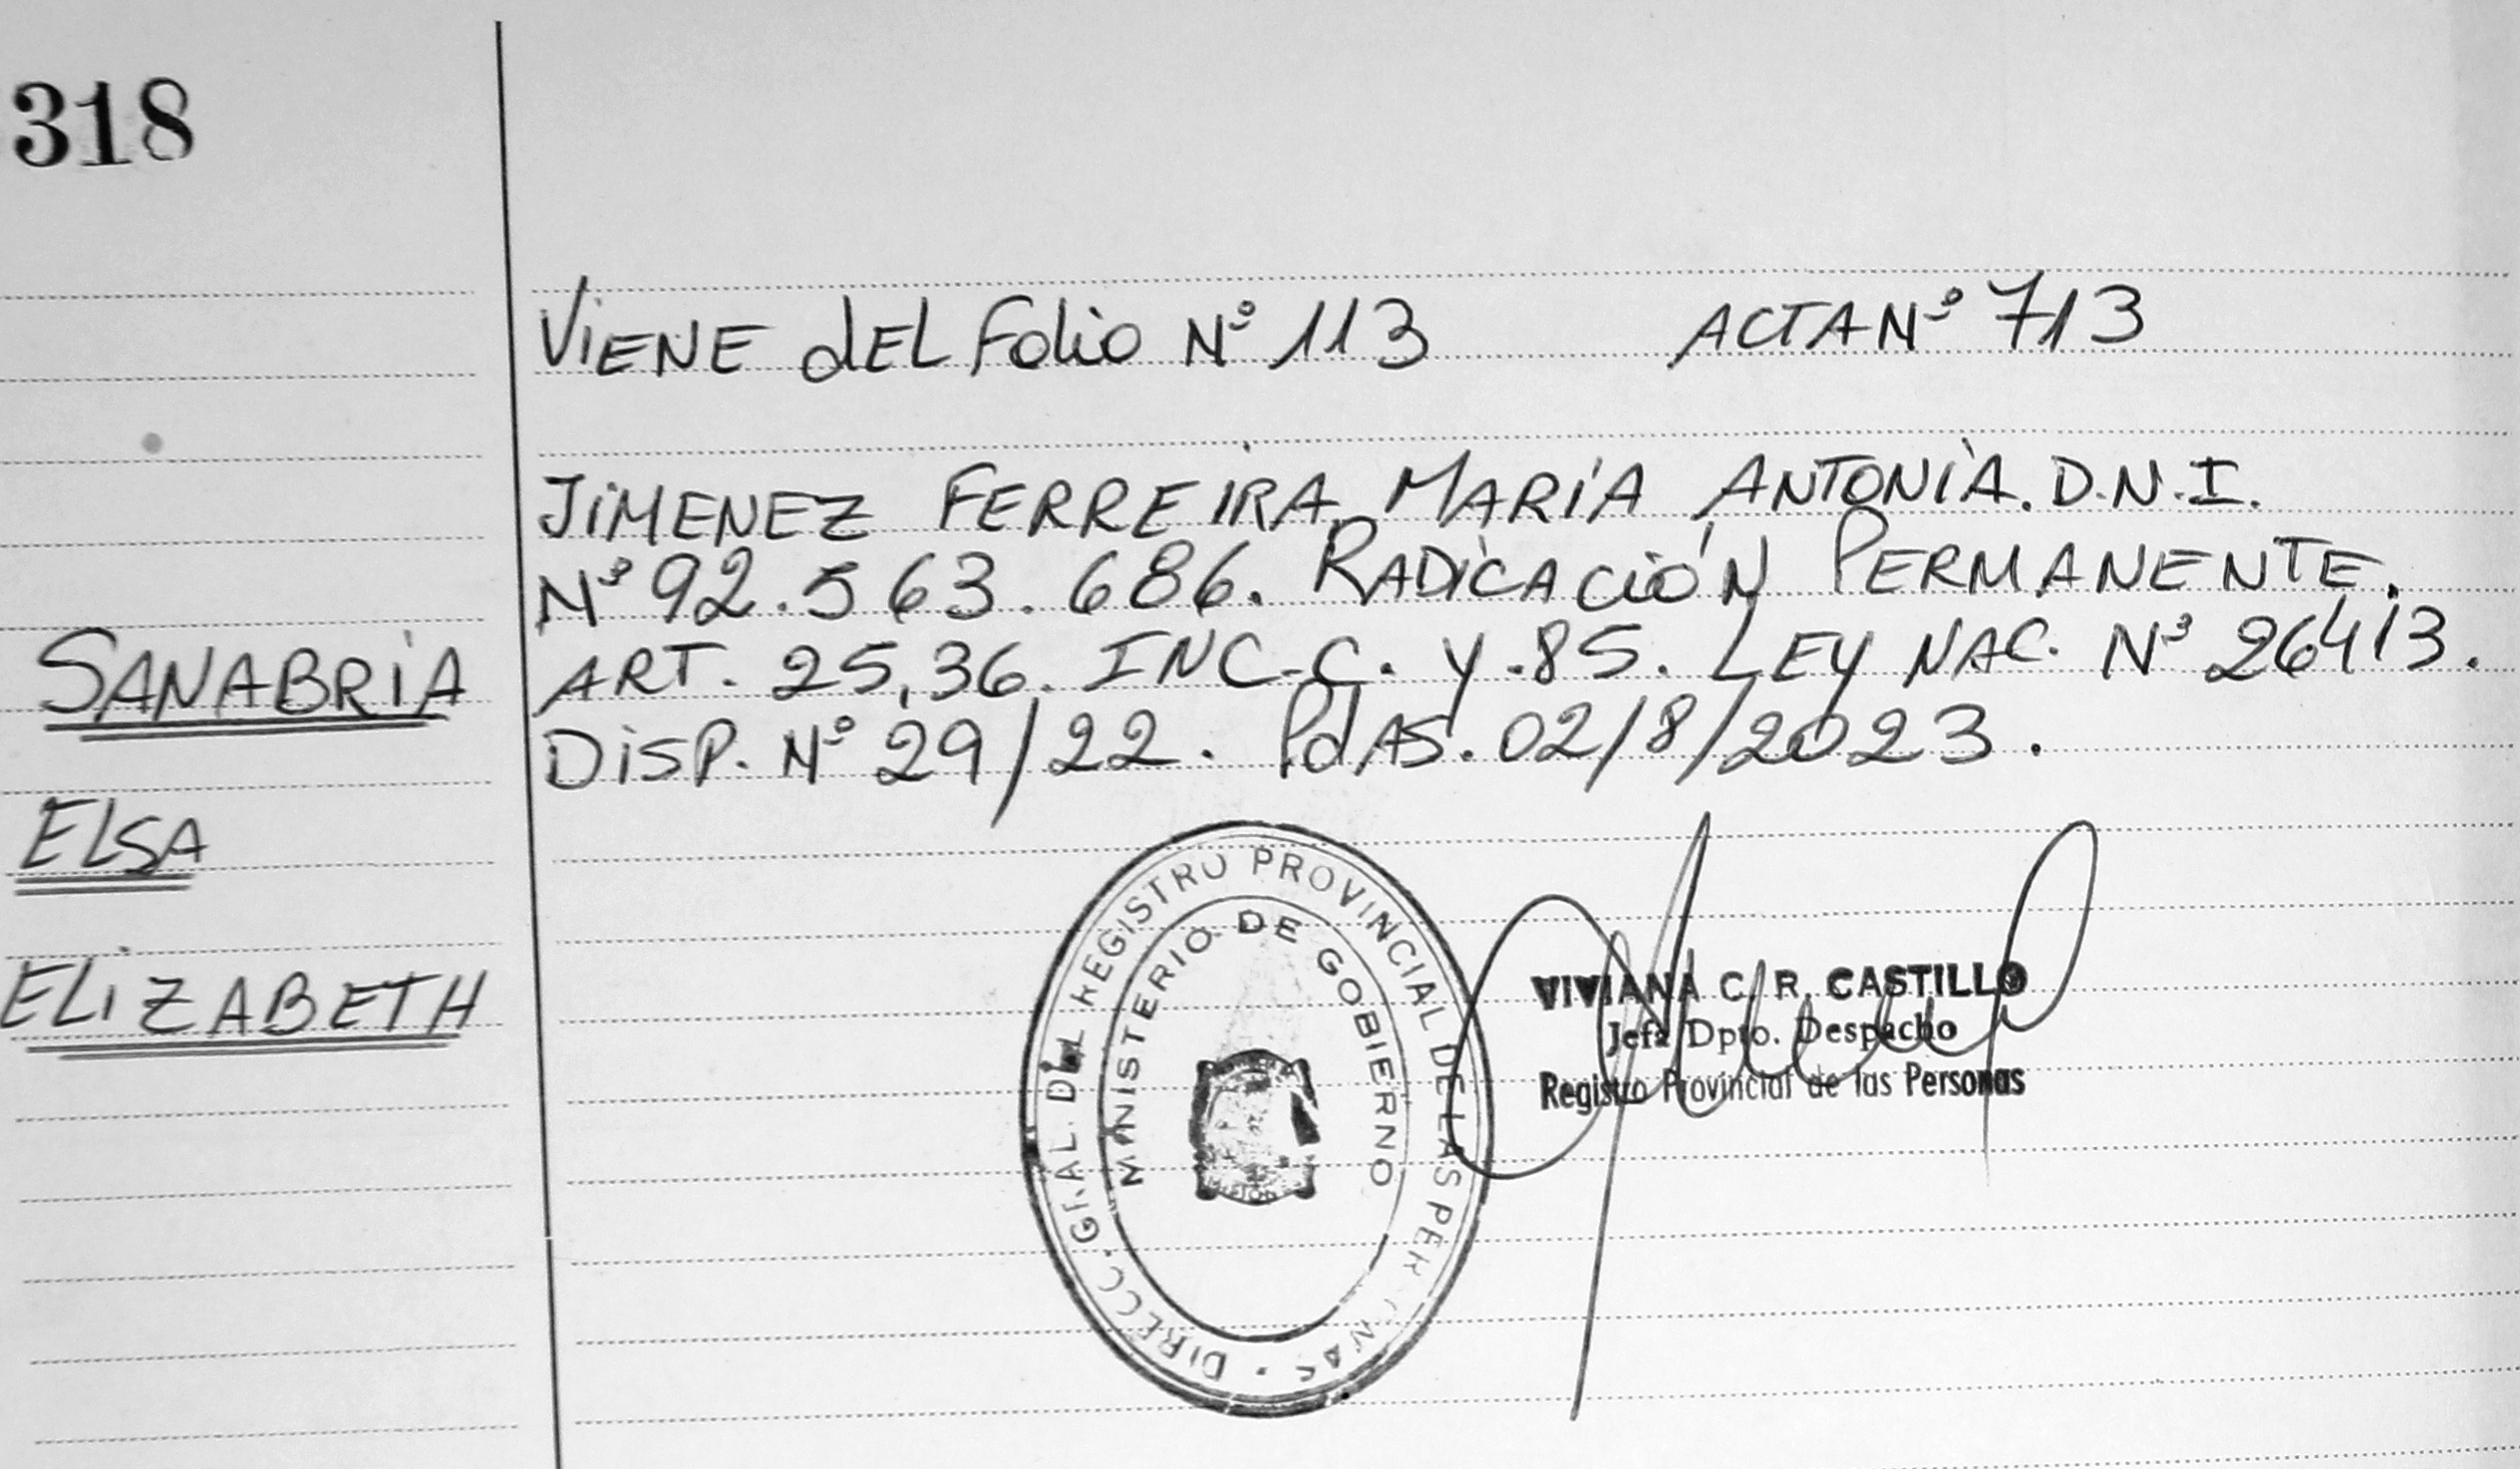 318
VIENE dEL Folio N° 113 ACTA N° 713
JIMENEZ FERREIRA, MARÍA ANTONIA. D.N.I.
N° 92.563.686. RADICACIÓN PERMANENTE.
ART. 25,36. INC-C. Y.85. LEY NAC. N° 26413.
DISP. N° 29/22. PdAS. 02/8/2023.
SANABRIA
ELSA
ELIZABETH
DIRECC. GRAL. DEL REGISTRO PROVINCIAL DE LAS PERSONAS
MINISTERIO DE GOBIERNO
VIVIANA C. R. CASTILLO
Jefa Dpto. Despacho
Registro Provincial de las Personas